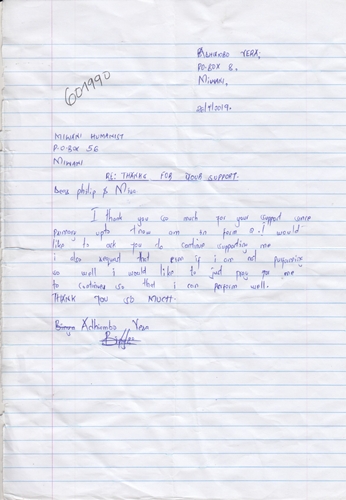 Adhiambo Vera,
P.O.Box 8,
Miwani.
601990
20/7/2019.
Miwani Humanist
P.O.Box 56
Miwani
RE: THANKS FOR YOUR SUPPORT.
Dear philip &
I thank you so much for your support since
primary upto I now am in form 2. I would
like to ask you to continue supporting me
i also request that even if i am not performing
so well i would like to just pray for me
to continue so that i can perform well.
THANK YOU SO MUCH.
Adhiambo Vera